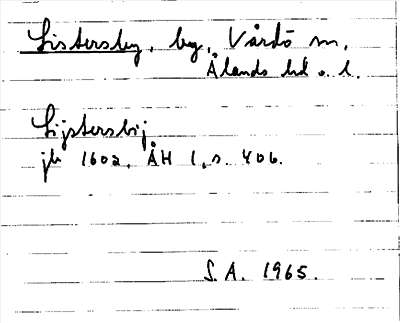 Listersby, by, Vårdö sn,
Ålands hd o. l.
Lijstersbij
jb 1602, ÅH 1, s. 406.
S.A. 1965.